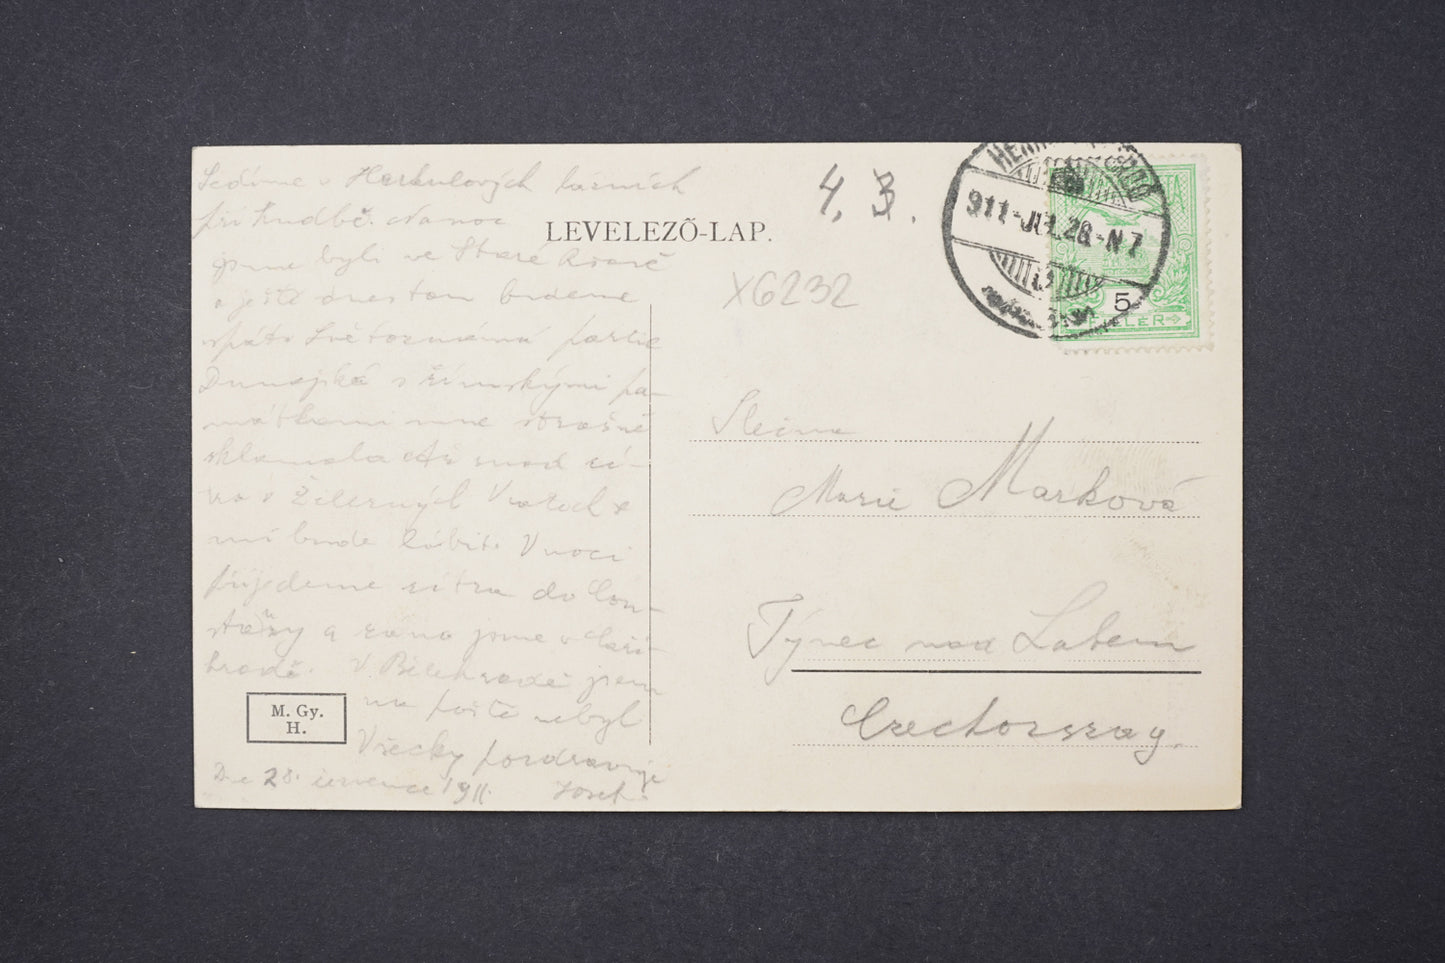 Sedíme v Herkulových lázních
při hudbě. Na noc
jsme byli ve Staré Oršavě
a ještě dnes tam budeme
zpět. Světoznámá partie
Dunajská s římskými pa-
mátkami mne strašně
sklamala
v Železných Vratech
mě bude líbit. V noci
přijedeme zítra do Con-
stanzy a ráno jsme v Caři-
hradě. V Bělehradě jsem
na poště nebyl
Všecky pozdravuje
Dne 28. července 1911. Josef.
M. Gy.
H.
LEVELEZŐ-LAP.
4. 3.
X6232
911-JUL.28.-N7
5
Slečna
Marie Marková
Týnec nad Labem
Czechorszag.